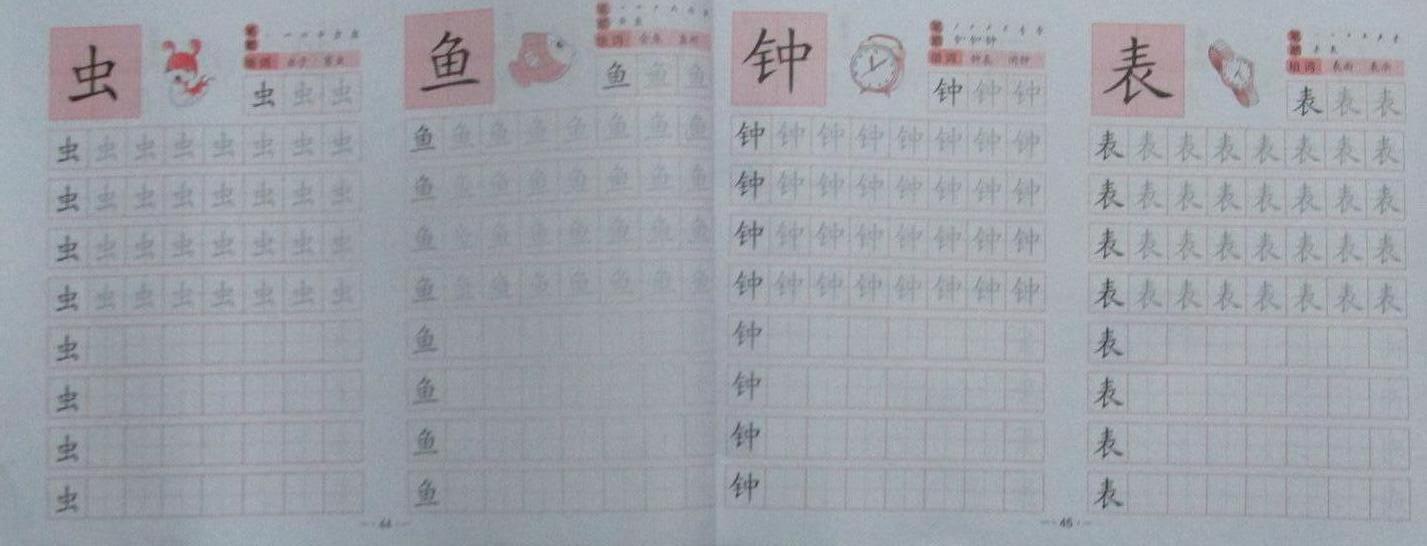 虫
笔顺
组词 虫子 害虫
虫 虫 虫
虫 虫 虫 虫 虫 虫 虫 虫
虫 虫 虫 虫 虫 虫 虫 虫
虫 虫 虫 虫 虫 虫 虫 虫
虫 虫 虫 虫 虫 虫 虫 虫
虫
虫
虫
虫
鱼
笔顺
组词 金鱼
鱼 鱼 鱼
鱼 鱼 鱼 鱼 鱼 鱼 鱼 鱼
鱼 鱼 鱼 鱼 鱼 鱼 鱼 鱼
鱼 鱼 鱼 鱼 鱼 鱼 鱼 鱼
鱼 鱼 鱼 鱼 鱼 鱼 鱼 鱼
鱼
鱼
鱼
鱼
44
钟
笔顺
组词 钟表 闹钟
钟 钟 钟
钟 钟 钟 钟 钟 钟 钟 钟
钟 钟 钟 钟 钟 钟 钟 钟
钟 钟 钟 钟 钟 钟 钟 钟
钟 钟 钟 钟 钟 钟 钟 钟
钟
钟
钟
钟
表
笔顺
组词 表示
表 表 表
表 表 表 表 表 表 表 表
表 表 表 表 表 表 表 表
表 表 表 表 表 表 表 表
表 表 表 表 表 表 表 表
表
表
表
表
45